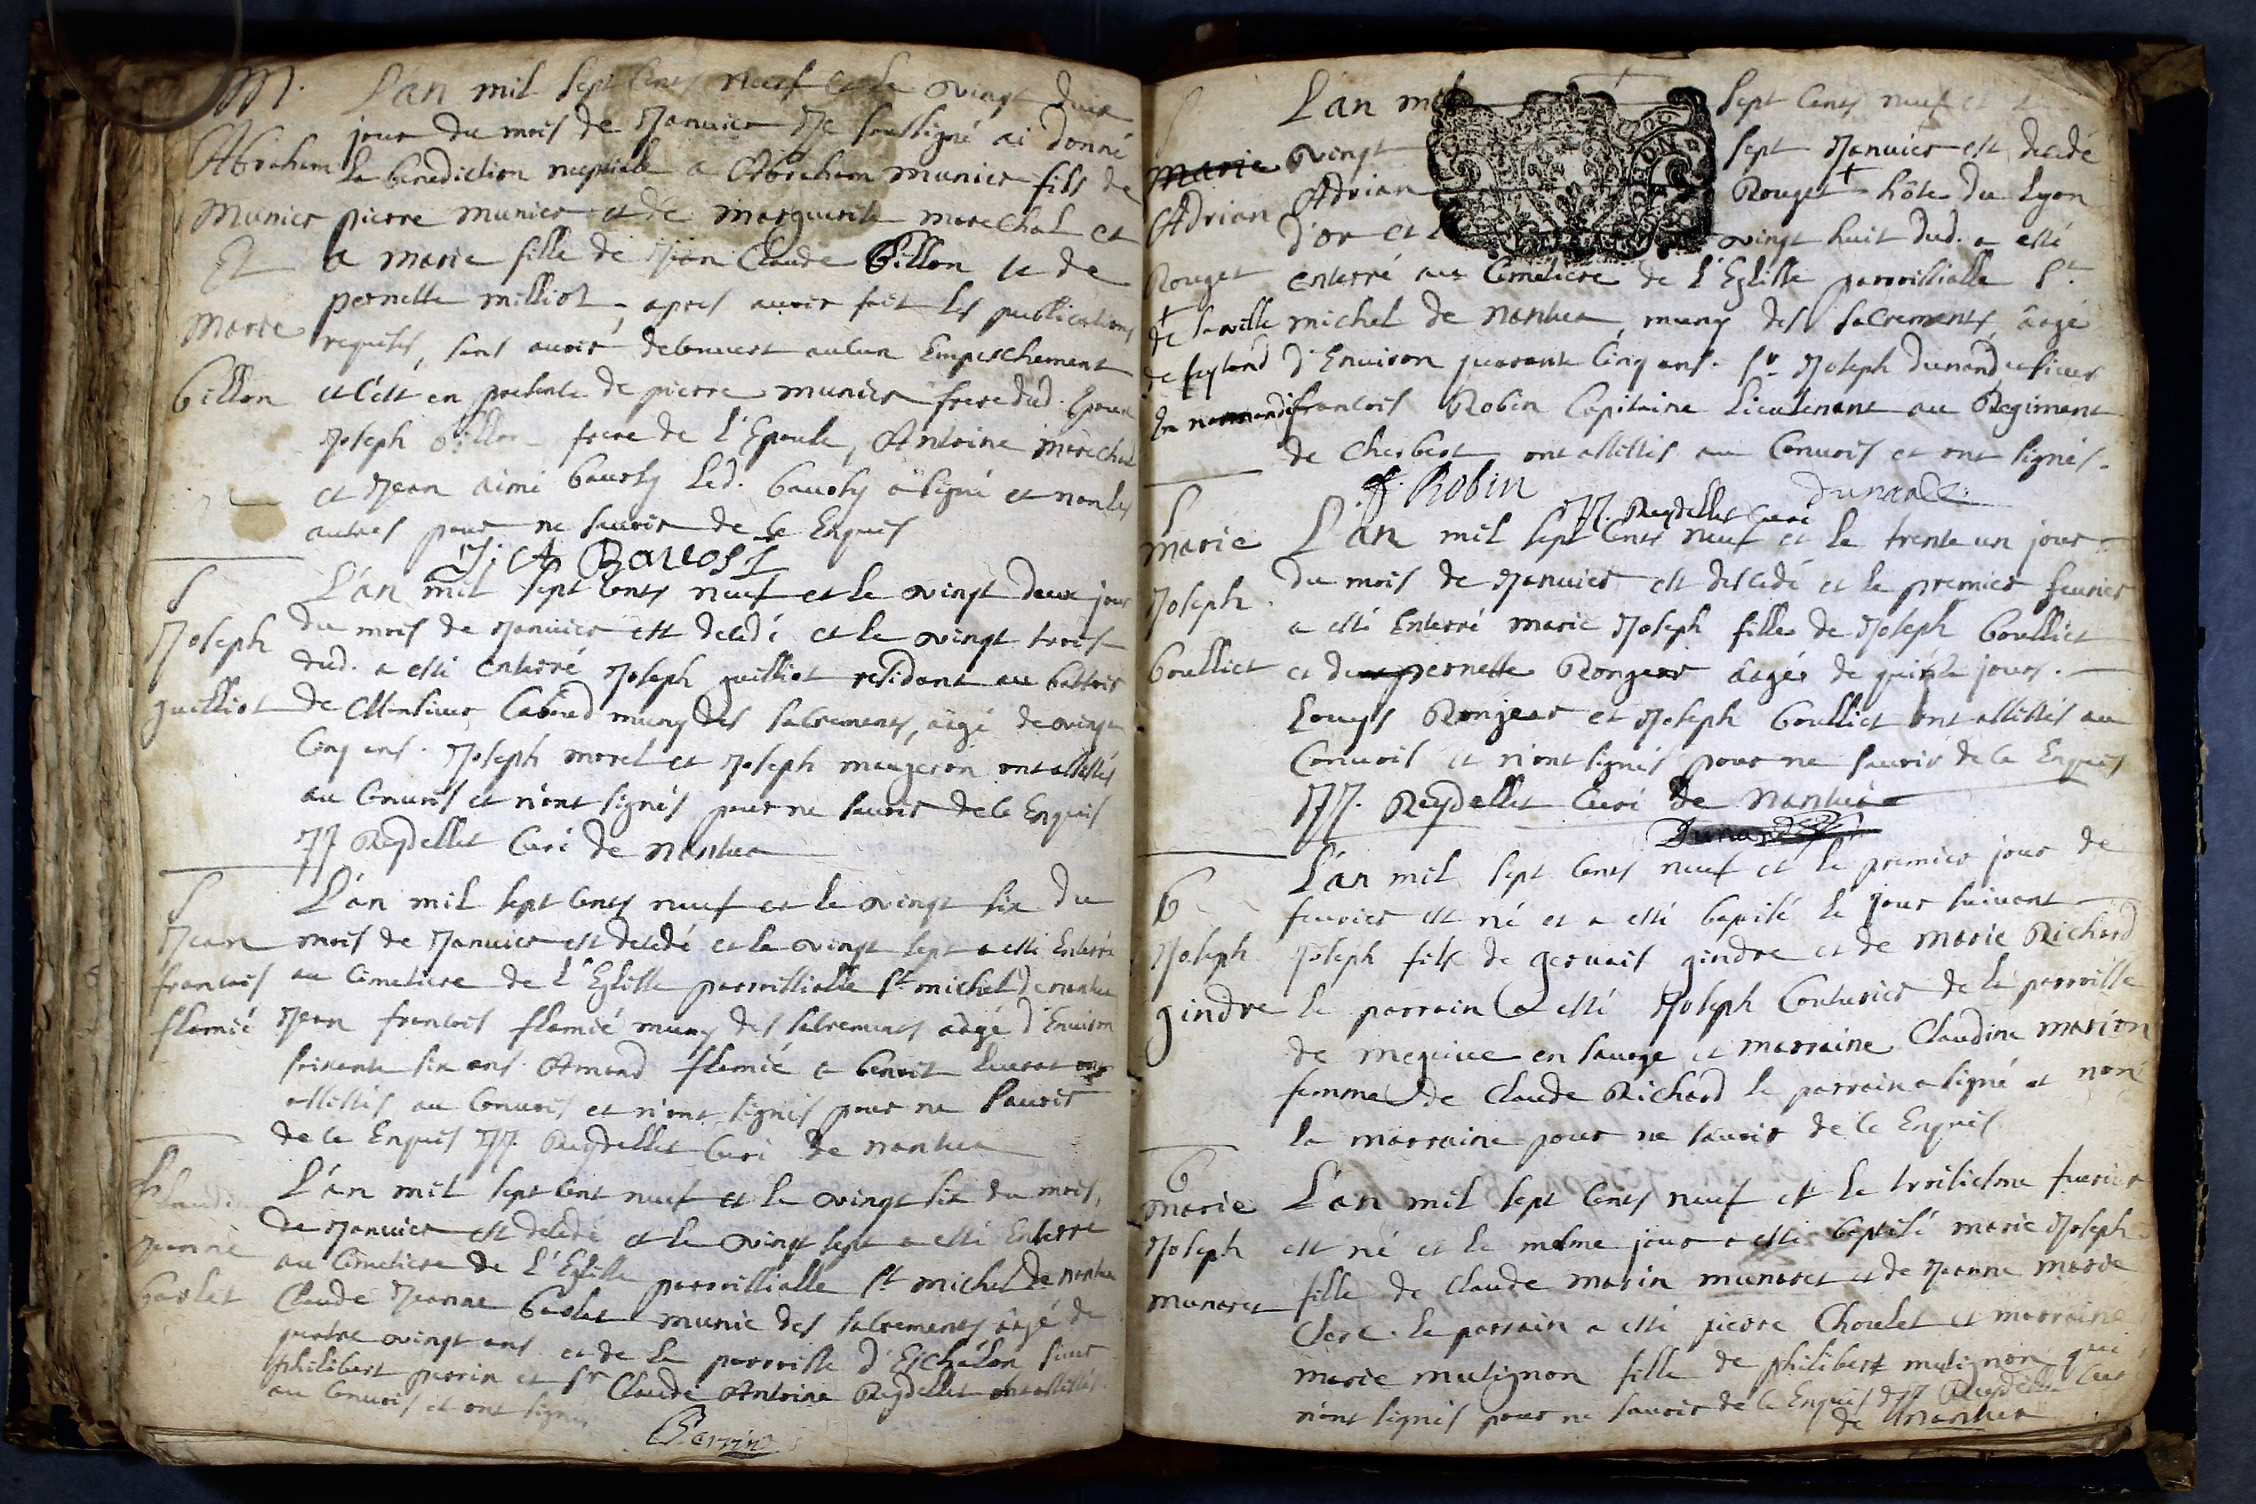 M. L'an mil sept cents neuf et le vingt deux
jour du mois de Janvier Je soussigné ai donné
Abraham la benediction nuptiale a Abraham munier fils de
Munier pierre munier et de marguerite marechal et
Et a marie fille de Jean Claude Billon et de
pernette milliot, apres avoir fait les publications
Marie requises, sans avoir découvert aucun Empeschement
Billon et c'est en presence de pierre munier frere dud. Epoux
Joseph Billon frere de l'Epouse, Antoine marechal
et Jean aimé bavoty led. bavoty a signé et non les
autres pour ne savoir de ce Enquis
J; A Bavost
S L'an mil sept cents neuf et le vingt deux jour
du mois de Janvier est decedé et le vingt trois
Joseph dud. a esté enterré Joseph guilliot residant au battoir
guilliot de Monsieur Cabord muny des sacrements, aagé de vingt
Cinq ans. Joseph morel et Joseph maugeron ont assistés
au Convois et n'ont signés pour ne savoir de ce Enquis
JJ Reydellet Curé de nantua
S L'an mil sept cents neuf et le vingt six du
Jean mois de Janvier est decedé et le vingt sept a esté Enterré
francois au Cimetiere de l'Eglisse parroissialle St. michel de nantua
flamié Jean francois flamié muny des sacrements aagé d'Environ
soixante six ans. Amand flamié et benoit Livrat ont
assistés au Convois et n'ont signés pour ne savoir
de ce Enquis JJ. Reydellet Curé de nantua
S L'an mil sept cent neuf et le vingt six du mois
Claudine de Janvier est decedé et le vingt sept a esté Enterré
Jeanne au Cimetiere de l'Eglisse parroissialle St. michel de nantua
barlet Claude Jeanne barlet munie des sacrements aagé de
quatre vingt ans et de la parroisse d'Eschalon sieur
philibert perrin et Sr. Claude Antoine Reydellet ont assistés
au Convois et ont signés
Perrin
S L'an mil sept cents neuf et le
marie vingt sept Janvier est decedé
Adrian Adrian Rouget + hôte du Lyon
d'or et le vingt huit dud. a esté
Rouget enterré au Cimetiere de l'Eglisse parroissialle St.
+ de la ville michel de nantua, muny des sacrements, aagé
de d'Environ quarante Cinq ans. Sr. Joseph dunand et sieur
En normandie francois Robin Capitaine Lieutenant au Regiment
de Cherbert ont assistés au Convois et ont signés.
f. Robin dunand
JJ. Reydellet Curé
S L'an mil sept cents neuf et le trente un jour
marie du mois de Janvier est decedé et le premier fevrier
Joseph a esté Enterré marie Joseph fille de Joseph boulliet
boulliet et de pernette Rongear aagée de quinze jours.
Louys Ronjear et Joseph boulliet ont assistés au
Convois et n'ont signés pour ne savoir de ce Enquis
JJ. Reydellet Curé de nantua
Dunand
B L'an mil sept cents neuf et le premier jour de
fevrier est né et a esté baptisé le jour suivant
Joseph Joseph fils de gervais gindre et de marie Richard
gindre le parrain a esté Joseph Conturier de la parroisse
de megieve en savoye et marraine Claudine marion
femme de Claude Richard le parrain a signé et non
la marraine pour ne savoir de ce Enquis
B
marie L'an mil sept cents neuf et le troisiesme fevrier
Joseph est né et le mesme jour a esté baptisé marie Joseph
munaret fille de Claude marin munaret et de Jeanne marie
Clerc. le parrain a esté pierre Choulet et marraine
marie mutignon fille de philibert mutignon qui
n'ont signés pour ne savoir de ce Enquis JJ Reydellet Curé
de nantua